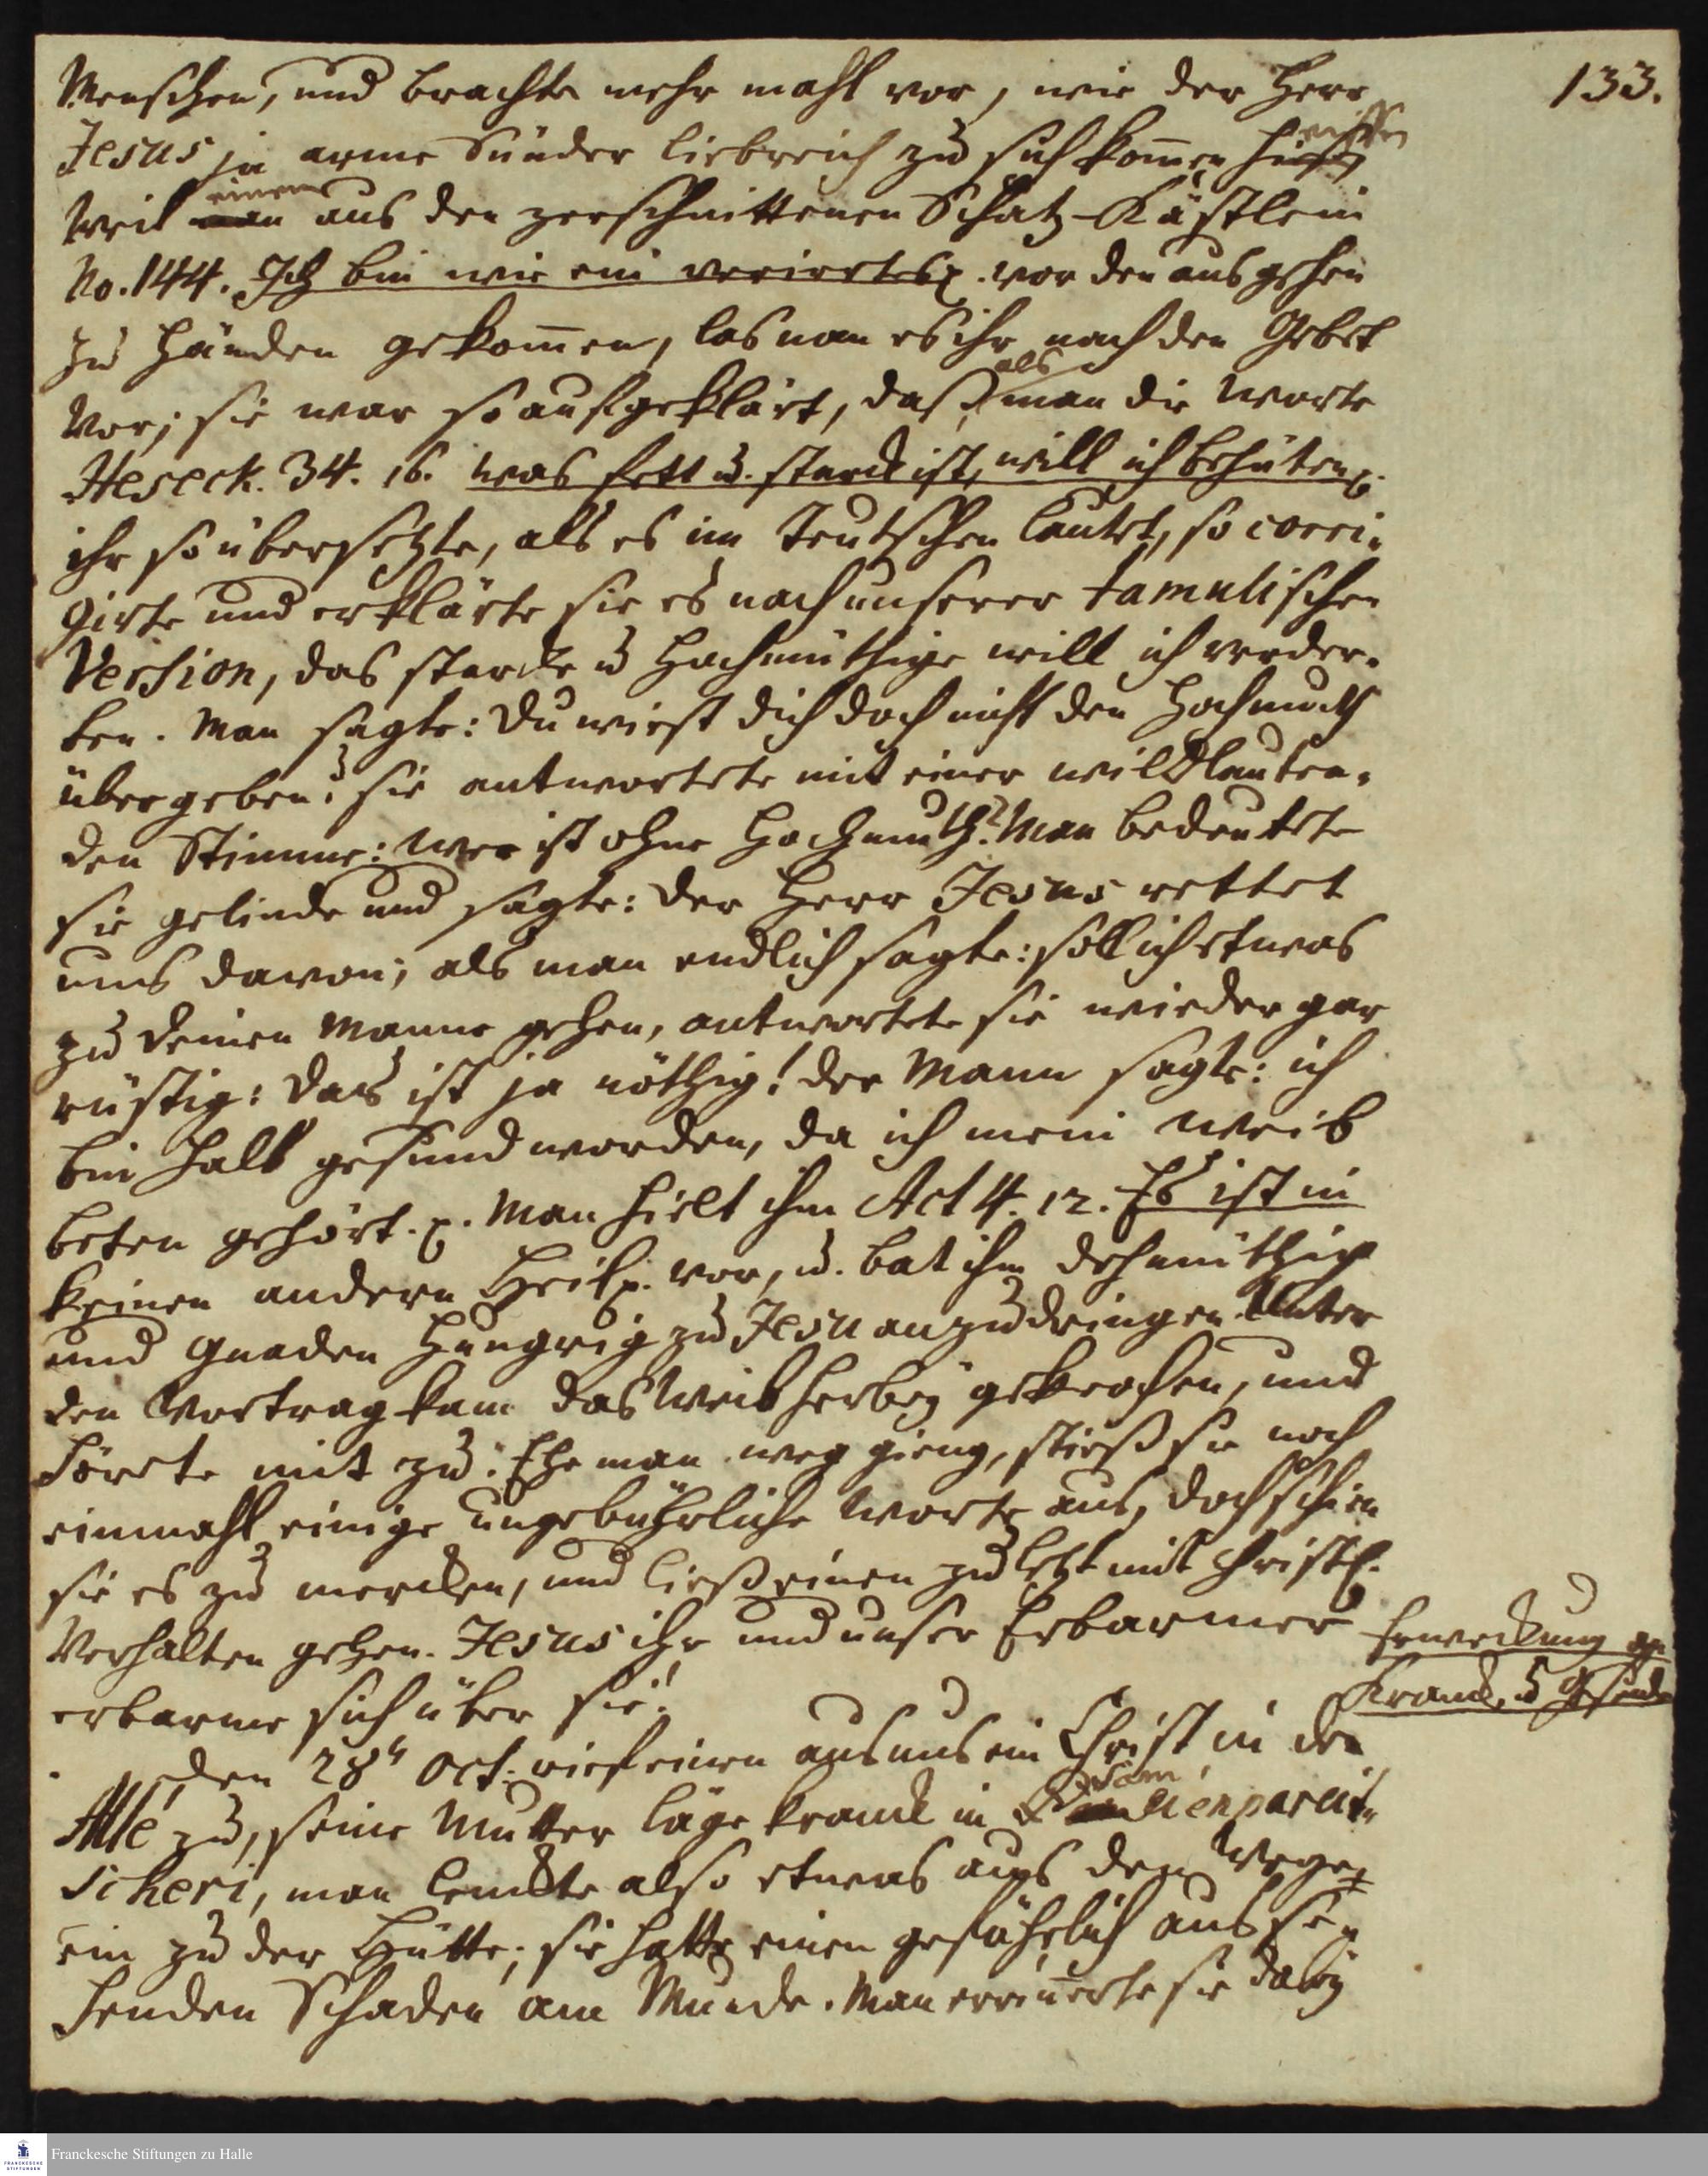 133.
Menschen, und brachte mehr mahl vor, wie der Herr
Jesus ja arme Sünder liebreich zu sich kommen hiesse
Weil einem aus den zerschnittenen Schatz-Kästlein
No. 144. Ich bin wie ein verirrtes p. vor den ausgehen
zu Händen gekommen, las man es ihr nach den Gebet
vor; sie war so aufgeklärt, daß als man die Worte
Heseck. 34. 16. was fett u. starck ist, will ich behüten p.
ihr so übersetzte, als es im Teutschen lautet, so corri-
girte und erklärte sie es nach unserer tamulischen
Version, das starcke u hochmüthige will ich verder-
ben. Man sagte: Du wirst dich doch nicht den Hochmuth
übergeben? sie antwortete mit einer wildlauten-
den Stimme: Wer ist ohne Hochmuth? Man bedeutete
sie gelinde und sagte: der Herr Jesus rettet
uns davon; als man endlich sagte: soll ich etwas
zu deinen Manne gehen, antwortete sie wieder gar
rüstig: Das ist ja nöthig! der Mann sagte: ich
bin halb gesund worden, da ich mein Weib
beten gehört. p. Man hielt ihm Act 4. 12. Es ist in
keinen andern Heil p. vor, u. bat ihn dehmüthig
und Gnaden hungrig zu Jesu anzudringen. Unter
den Vortrag kam das Weib herbey gekrochen, und
hörete mit zu. Ehe man weg gieng, stieß sie noch
einmahl einige ungebührliche Worte aus, doch schien
sie es zu mercken, und ließ einen zuletzt mit Christl.
Verhalten gehen. Jesus ihr und unser Erbarmer
erbarme sich über sie!
Erweckung an
Krancke u Gesunde
den 28ⁿ Oct. rief einen aus uns ein Christ in der
Allé zu, seine Mutter läge kranck in
scheri, man lenckte also etwas aus dem Wege
ein zu der Hütte; sie hatte einen gefährlich ausse-
henden Schaden am Munde. Man erinnerte sie dabey
Franckesche Stiftungen zu Halle